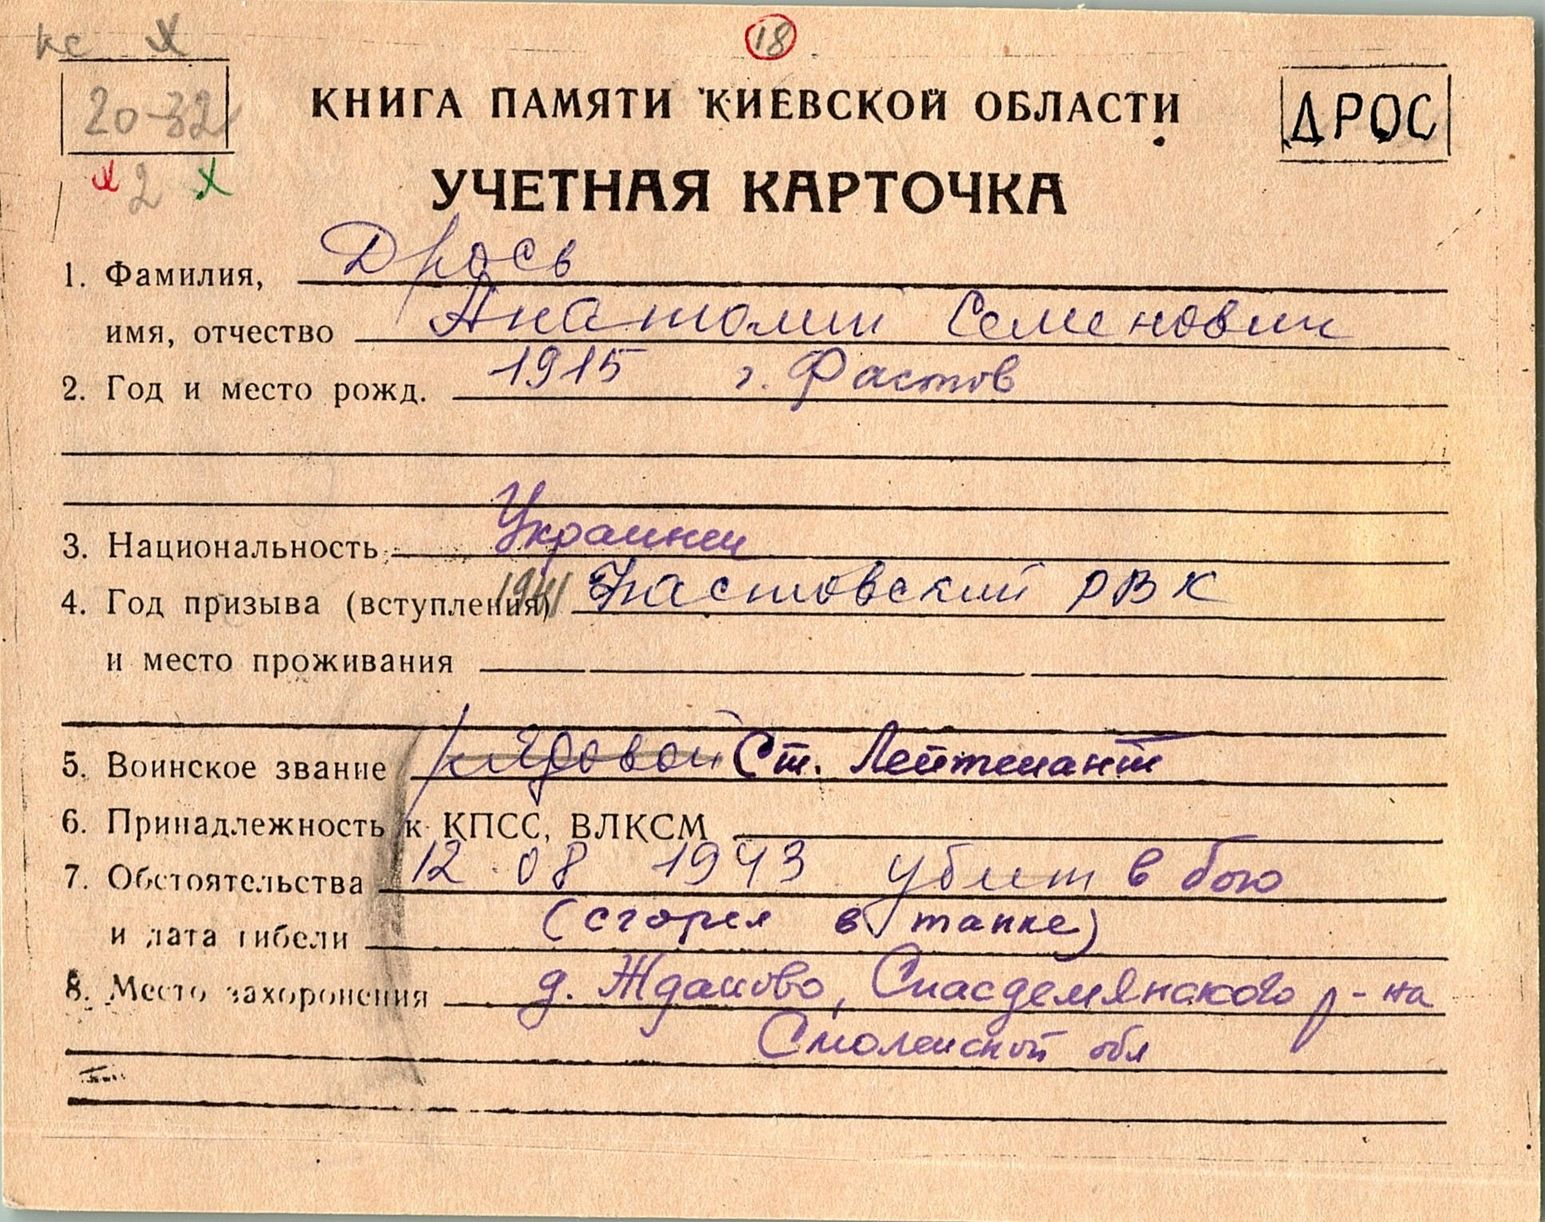 кс х
18
20-32
КНИГА ПАМЯТИ КИЕВСКОЙ ОБЛАСТИ
ДРОС
х 2 х
УЧЕТНАЯ КАРТОЧКА
1. Фамилия, Дрось
имя, отчество Анатолий Семенович
2. Год и место рожд. 1915 г. Фастов
3. Национальность Украинец
4. Год призыва (вступления) 1941 Фастовский РВК
и место проживания
5. Воинское звание рядовой Ст. Лейтенант
6. Принадлежность к КПСС, ВЛКСМ
7. Обстоятельства 12.08 1943 убит в бою
и дата гибели (сгорел в танке)
8. Место захоронения д. Жданово, Спасдемянского р-на
Смоленской обл